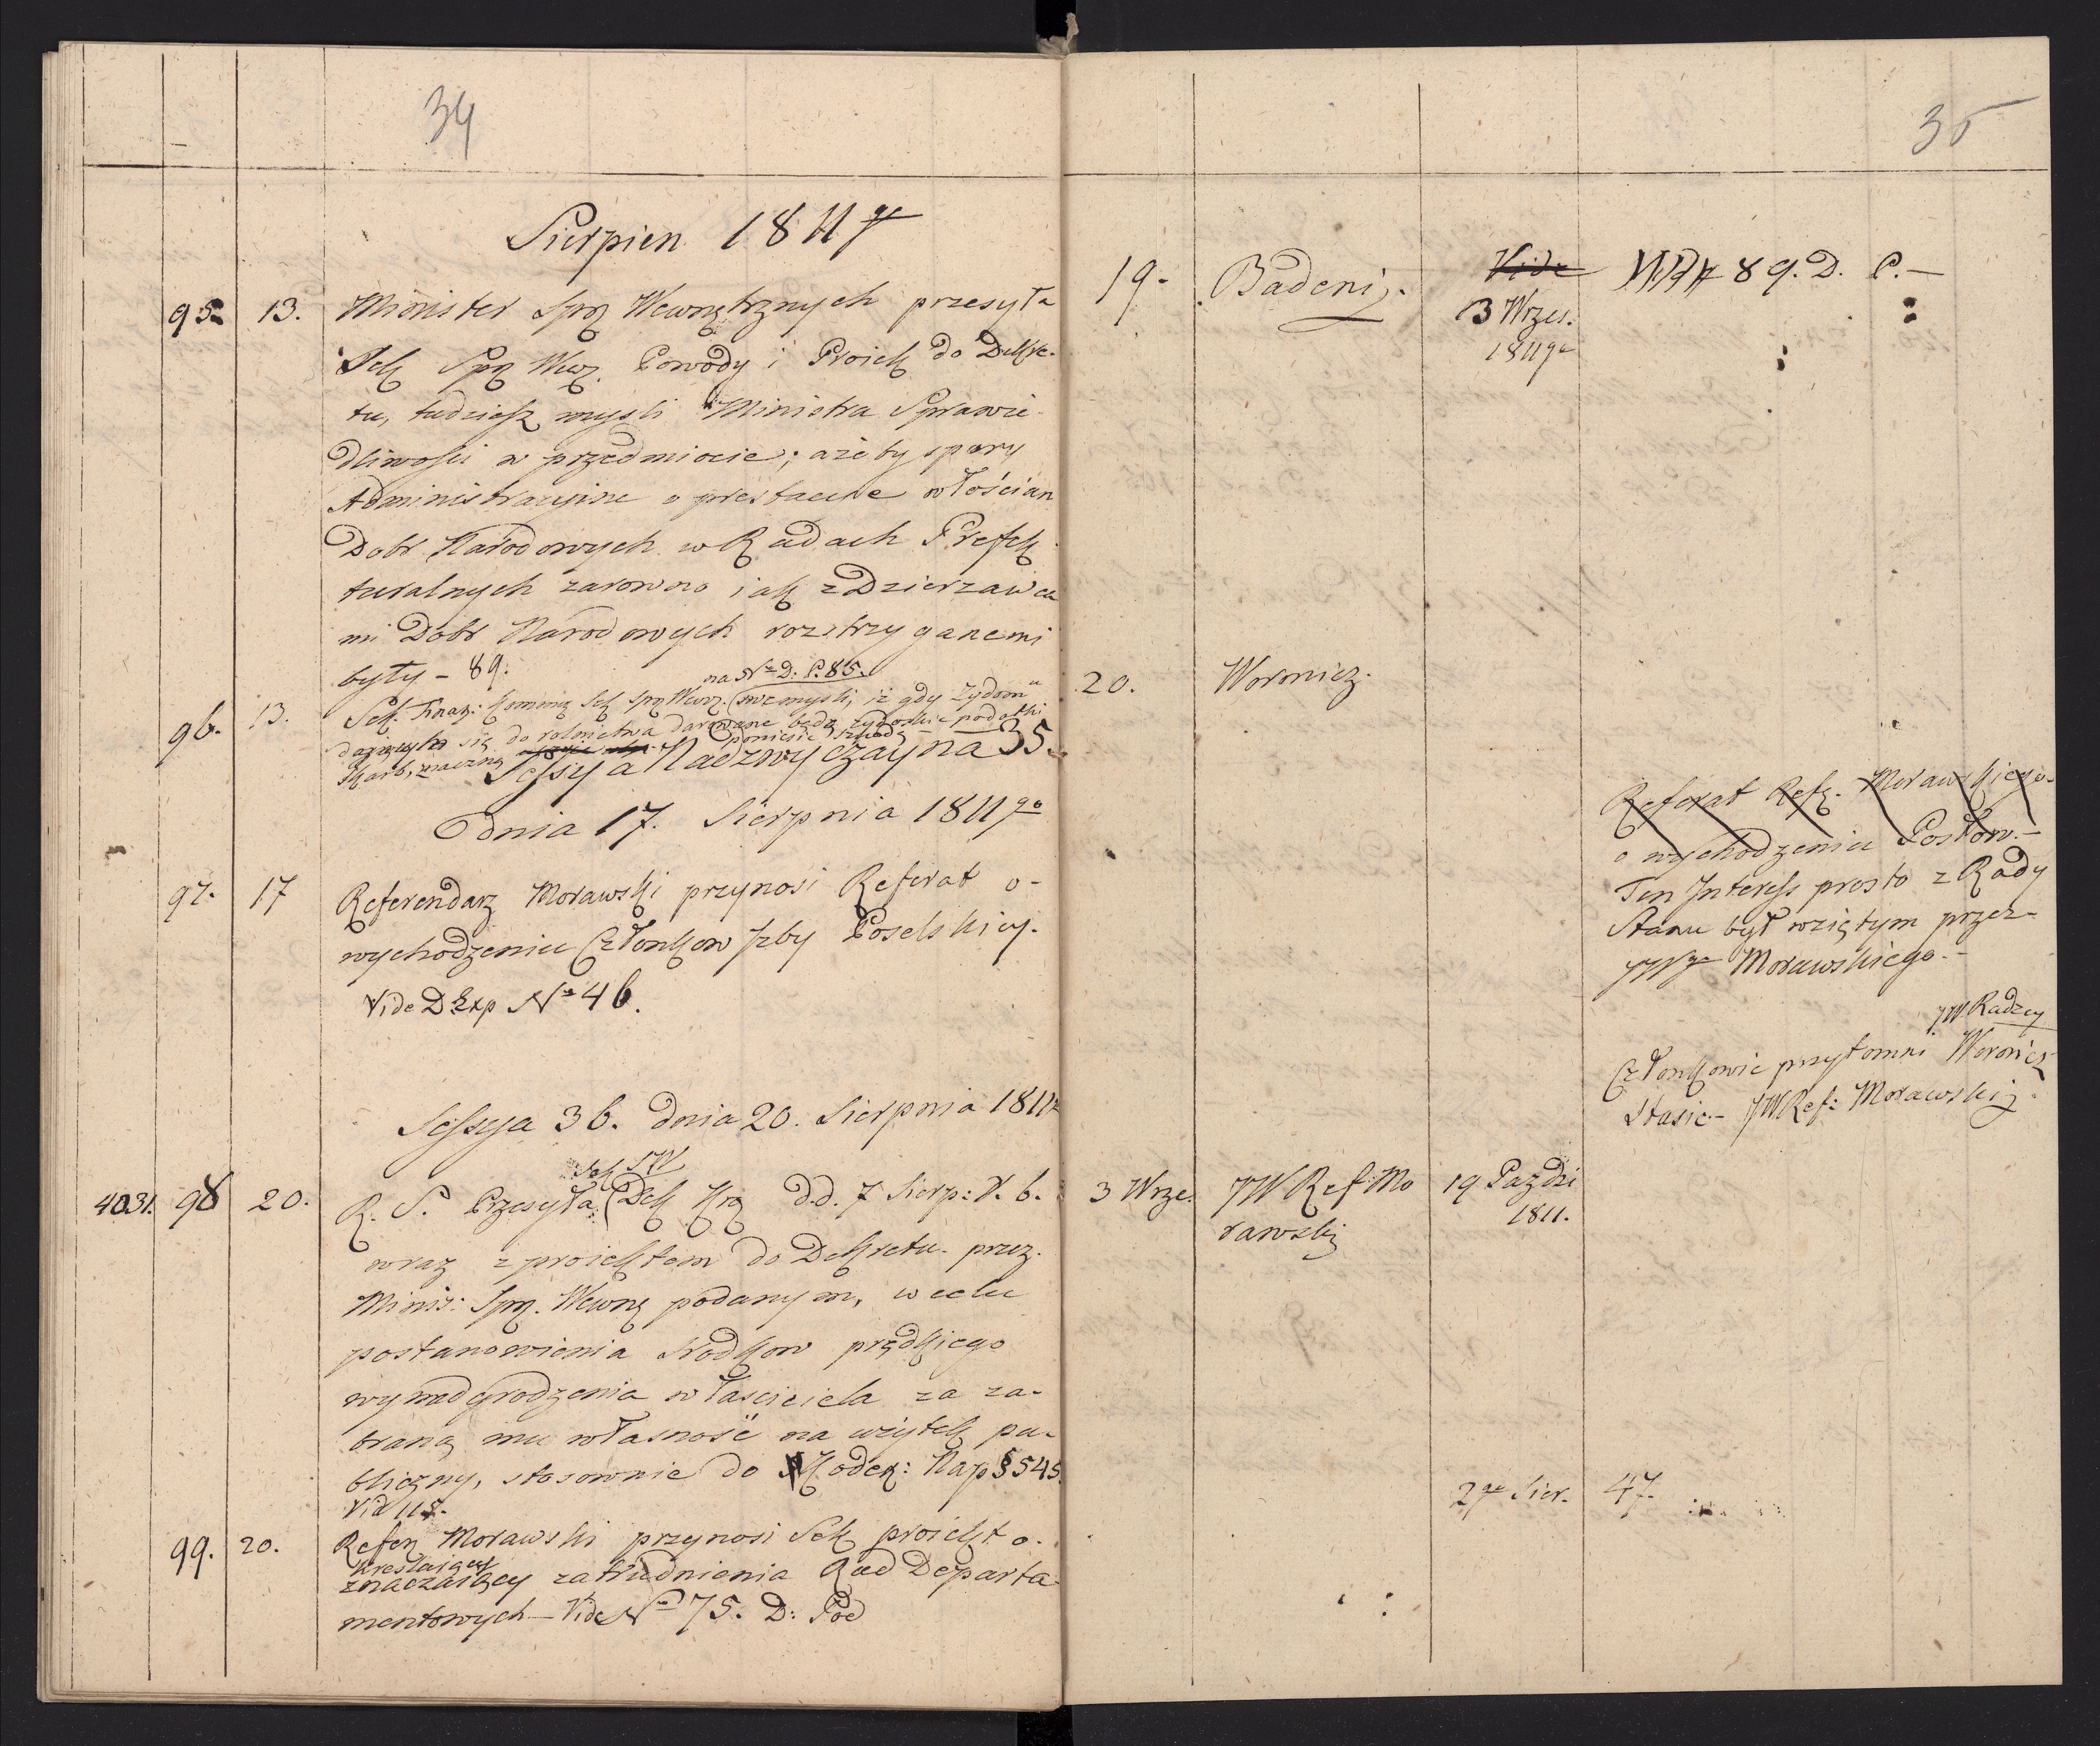 34
Sierpien 1811go
95. 13. Minister Spr Wewnętrznych przesyła
Sek Spr Wew. Powody i Proiek do Dekre-
tu, tudziesz mysli Ministra Sprawie-
dliwości w przedmiocie; ażeby spory
Administracyine o prestacye włościan
Dobr Narodowych w Radach Prefek
turalnych zarowno iak z Dzierzawca
mi Dobr Narodowych rozstrzyganemi
były - 89.
na No D: P. 85.
96. 13. Sek. Finan: Kommu Sek Spr Wewn. swe mysli, iż gdy Żydom
do rolnictwa darowane będą żydowskie podatki
Skarb, znaczną poniesie szkodę
Sessya Nadzwyczayna 35.
dnia 17. Sierpnia 1811go
97. 17 Referendarz Morawski przynosi Referat o-
wychodzeniu Członkow Izby Poselskiey.
Vide D Exp No 46.
Sessya 36. dnia 20. Sierpnia 1811
Sek SW
4031. 98 20. R. S. Przesyła Dek Kró d.d. 7 Sierp: r. b.
wraz z proiektem do Dekretu przez
Minis: Spr. Wewnę podanym, w celu
postanowienia srodkow prędkiego
wynadgrodzenia właściciela za za-
braną mu własność na użytek pu-
bliczny, stosownie do Kodex: Nap § 545
Vid 115.
99. 20. Refer Morawski przynosi Sek proiekt o-
kreslaiący
znaczaiący zatrudnienia Rad Departa-
mentowych - Vide No 75. D: Pod
35
19. Badeni. Vide 89. D. P. -
13 Wrzes.
1811go
20. Woronicz.
Referat Refe. Morawskiego
o wychodzeniu Posłow. -
Ten Interess prosto z Rady
Stanu był wziętym przez -
JWgo Morawskiego. -
JW. Radzcy
Członkowie przytomni Woronicz
Stasic - JW Ref: Morawski.
3 Wrze. JW Ref: Mo 19 Pazdzi
rawski 1811.
27go Sier. 47.